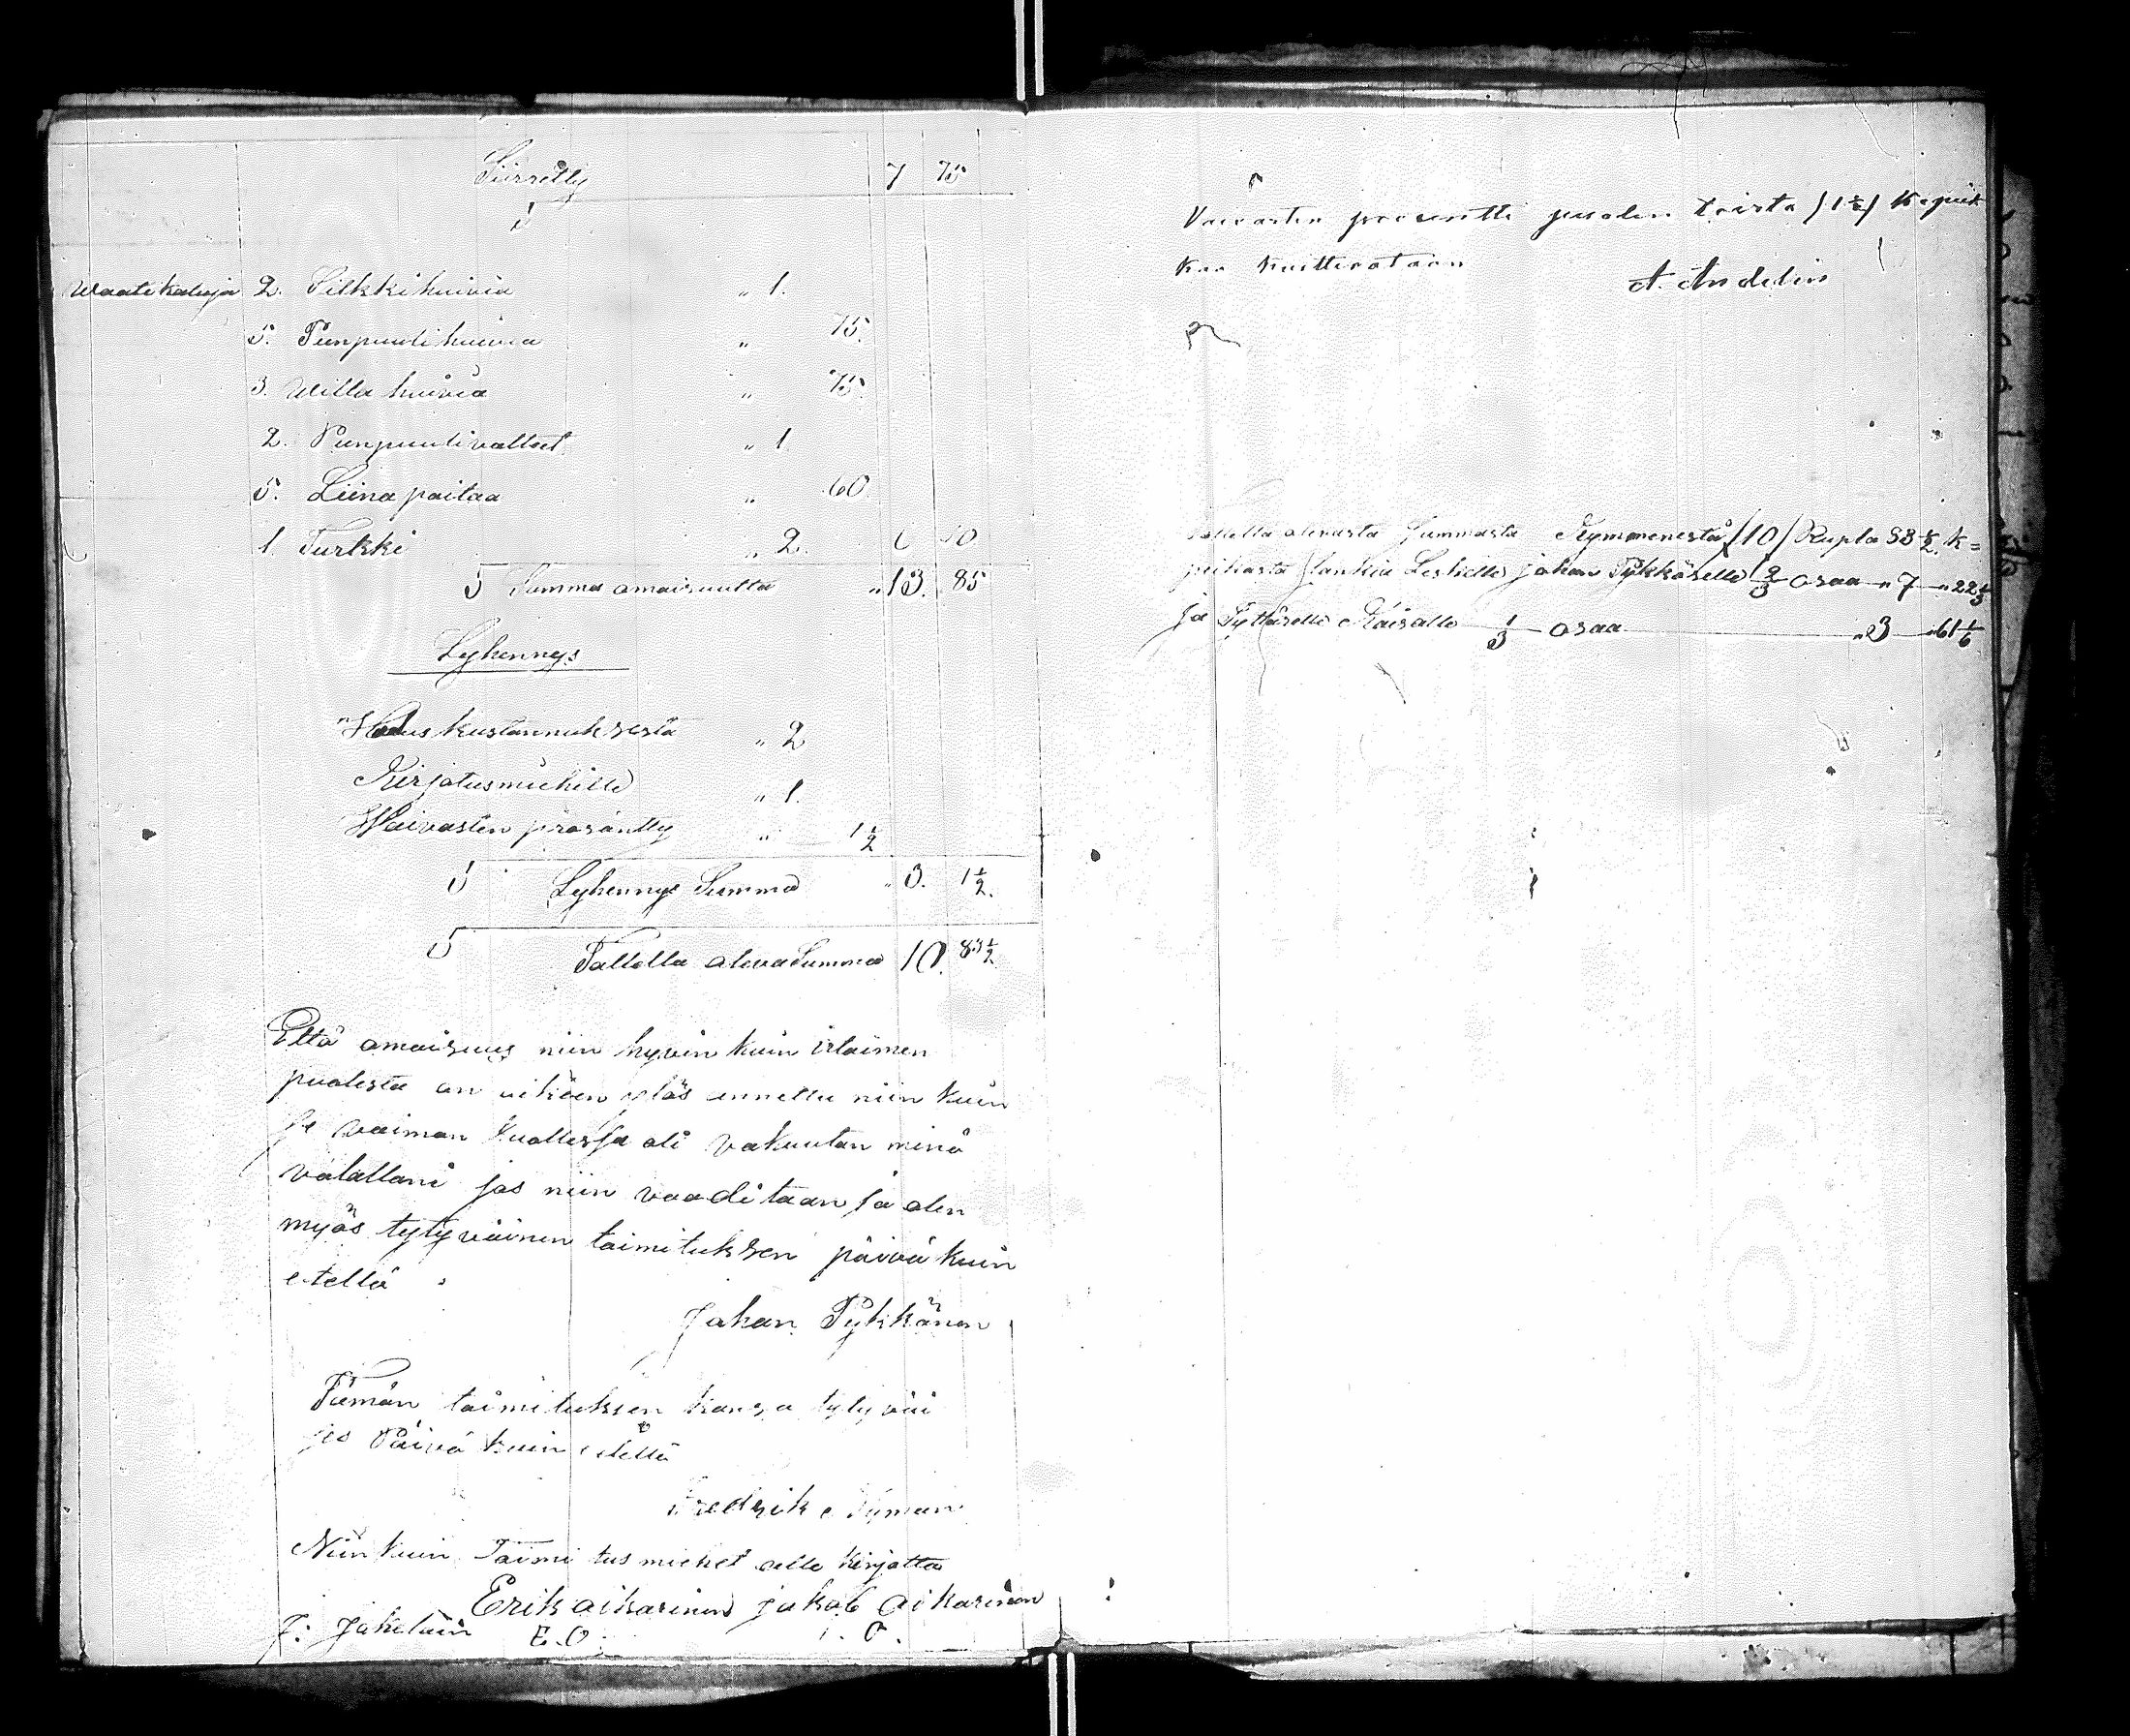 Siirretty 7 75
S
Waatekaluja 2. Silkki huivia " 1.
5. Punpuuli huivia " 75.
3. Willa huivia " 75.
2. Punpuulivaltteet " 1
5. Liina paitaa " 60
1. Turkki " 2. 6 10
S Summa omaisuutta " 13. 85
Lyhennys
Hautuskustannuksesta " 2
Kirjotusmiehille " 1.
Waivasten prosäntty " 1 1/2
S Lyhennys Summa " 3. 1 1/2.
S Tallella oleva Summa 10. 83 1/2
Että omaisuus niin hyvin kuin irtaimen
puolesta on oikeen ylös annettu niin kuin
se vaimon kuollessa oli vakuutan minä
valallani jos niin vaaditaan ja olen
myös tytyväinen toimituksen päivä kuin
etellä
Johan Pykkänen
Tämän toimituksen kansa tytyväi
jis Päivä kuin etellä
Fredrik
Niin kuin Toimi tus miehet alle kirjotta
Erik aikarinen jakob aikarinen
J: E. O.
Vaivasten prosentti puolen toista /1 1/2/ Kopeik
kaa kuitterataan
A. Andelin
Tallella olevasta Summasta Kymmenestä /10/ Rupla 83 1/2. k=
peikasta saapi Leskelle johan Pykkäselle 2/3 osaa " 7 " 22 1/3
ja Tyttärelle Kaisalle 1/3 osaa " 3 " 61 1/6